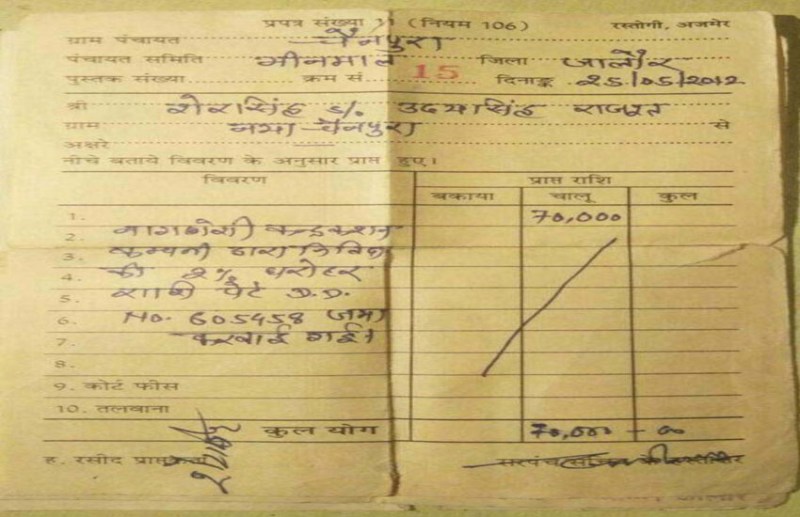 प्रपत्र संख्या 11 (नियम 106) रस्तोगी, अजमेर
ग्राम पंचायत चैनपुरा
पंचायत समिति भीनमाल जिला जालौर
पुस्तक संख्या क्रम सं. 15 दिनाङ्क 25/05/2012
श्री शेरसिंह s/o उदयसिंह राजपूत
ग्राम नया चैनपुरा से
अक्षरे
नीचे बताये विवरण के अनुसार प्राप्त हुए।
विवरण प्राप्त राशि
बकाया चालू कुल
1. 70,000
2. नागणेशी कन्ट्रक्शन
3. कम्पनी द्वारा निविदा
4. की 2% धरोहर
5. राशी पेटे D.D.
6. No. 605458 जमा
7. करवाई गई।
8.
9. कोर्ट फीस
10. तलवाना
कुल योग 70,000 - 00
ह. रसीद प्राप्तकर्ता सरपंच के हस्ताक्षर